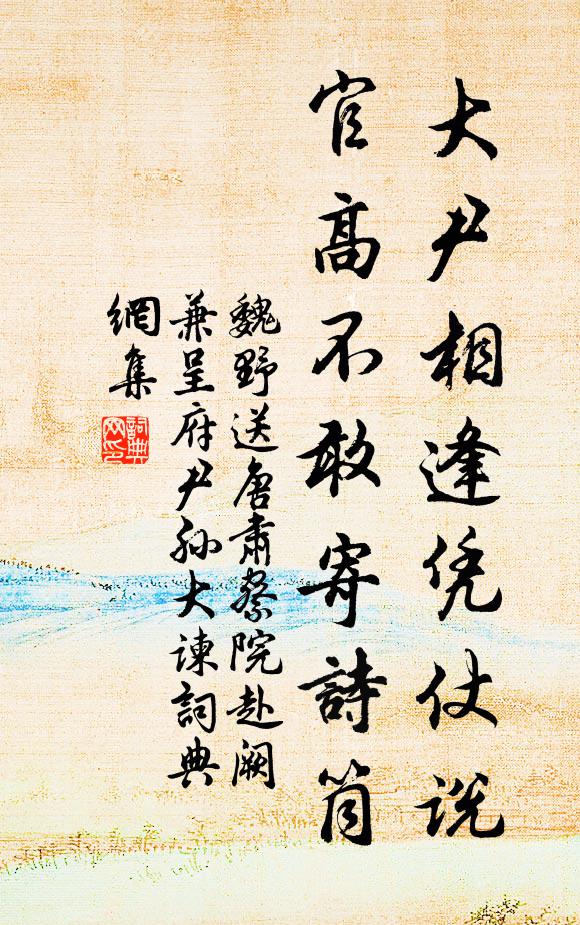 大尹相逢凭仗说
官高不敢寄詩筒
魏野送唐肅察院赴阙
兼呈府尹孙大谏詞典
網集
詞典
网印